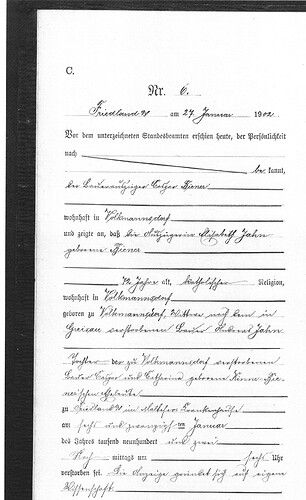 C.
Nr. 6.
Friedland OS am 27. Januar 1902
Vor dem unterzeichneten Standesbeamten erschien heute, der Persönlichkeit
nach
be kannt,
der Bauerauszügler Caspar
wohnhaft in Volkmannsdorf
und zeigte an, daß die Auszüglerin Elisabeth Jahn
geborene
Jahre alt, katholischer Religion,
wohnhaft in Volkmannsdorf
geboren zu Volkmannsdorf, Wittwe nach dem in
Greisau verstorbenen Bauer Andreas Jahn
Tochter der zu Volkmannsdorf verstorbenen
Bauer Caspar und Catharina geborene
Eheleute
zu Friedland OS im Malteser Krankenhause
am sechs und zwanzigsten Januar
des Jahres tausend neunhundert und zwei
Nach mittags um sechs Uhr
verstorben sei. Die Anzeige gründet sich auf eigene
Wissenschaft